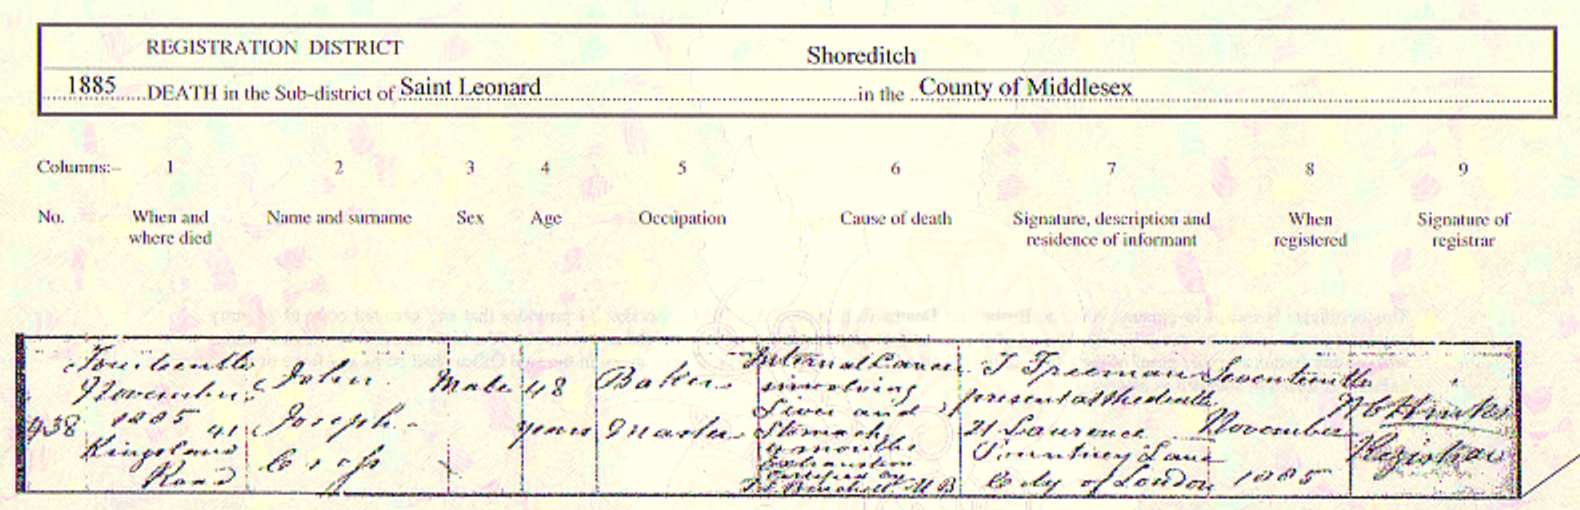 REGISTRATION DISTRICT Shoreditch
1885 DEATH in the Sub-district of Saint Leonard in the County of Middlesex
Columns:– 1 2 3 4 5 6 7 8 9
No. When and where died Name and surname Sex Age Occupation Cause of death Signature, description and residence of informant When registered Signature of registrar
438
Fourteenth
November
1885 41
Kingsland
Road
John
Joseph
Cross
Male
48
years
Baker
Master
Internal Cancer
involving
Liver and
Stomach
months
Exhaustion
Certified by
M B
T Freeman
present at the death
21 Laurence
Pountney Lane
City of London
Seventeenth
November
1885
Registrar